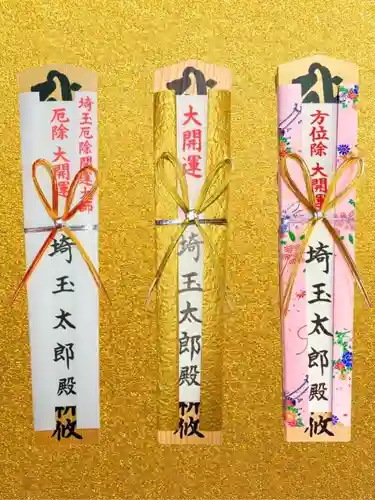 埼玉厄除開運大師
厄除 大開運
埼玉太郎殿
大開運
埼玉太郎殿
方位除 大開運
埼玉太郎殿